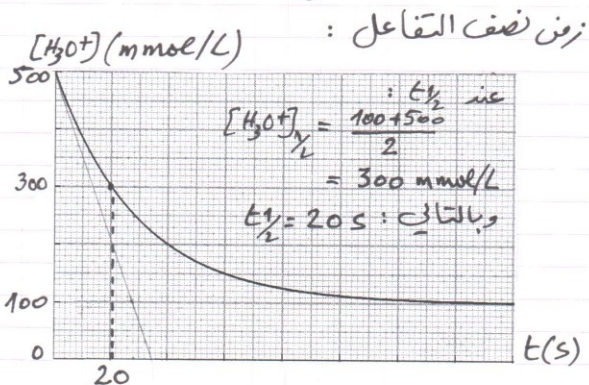 زمن نصف التفاعل :
[H₃O⁺](mmol/L)
500
300
100
0
20
t(s)
عند t½ :
[H₃O⁺]½ = 100+500 / 2
= 300 mmol/L
وبالتالي : t½ = 20 s